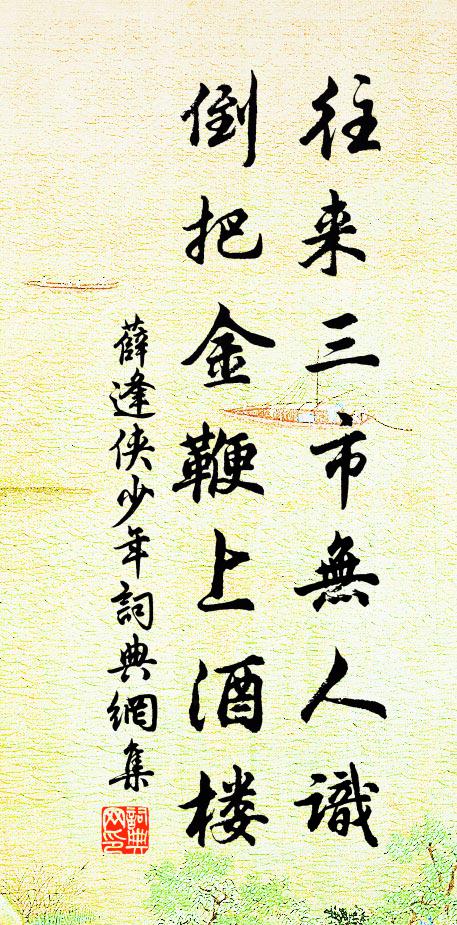 往来三市無人識
倒把金鞭上酒楼
薛逢侠少年詞典網集
詞典网印